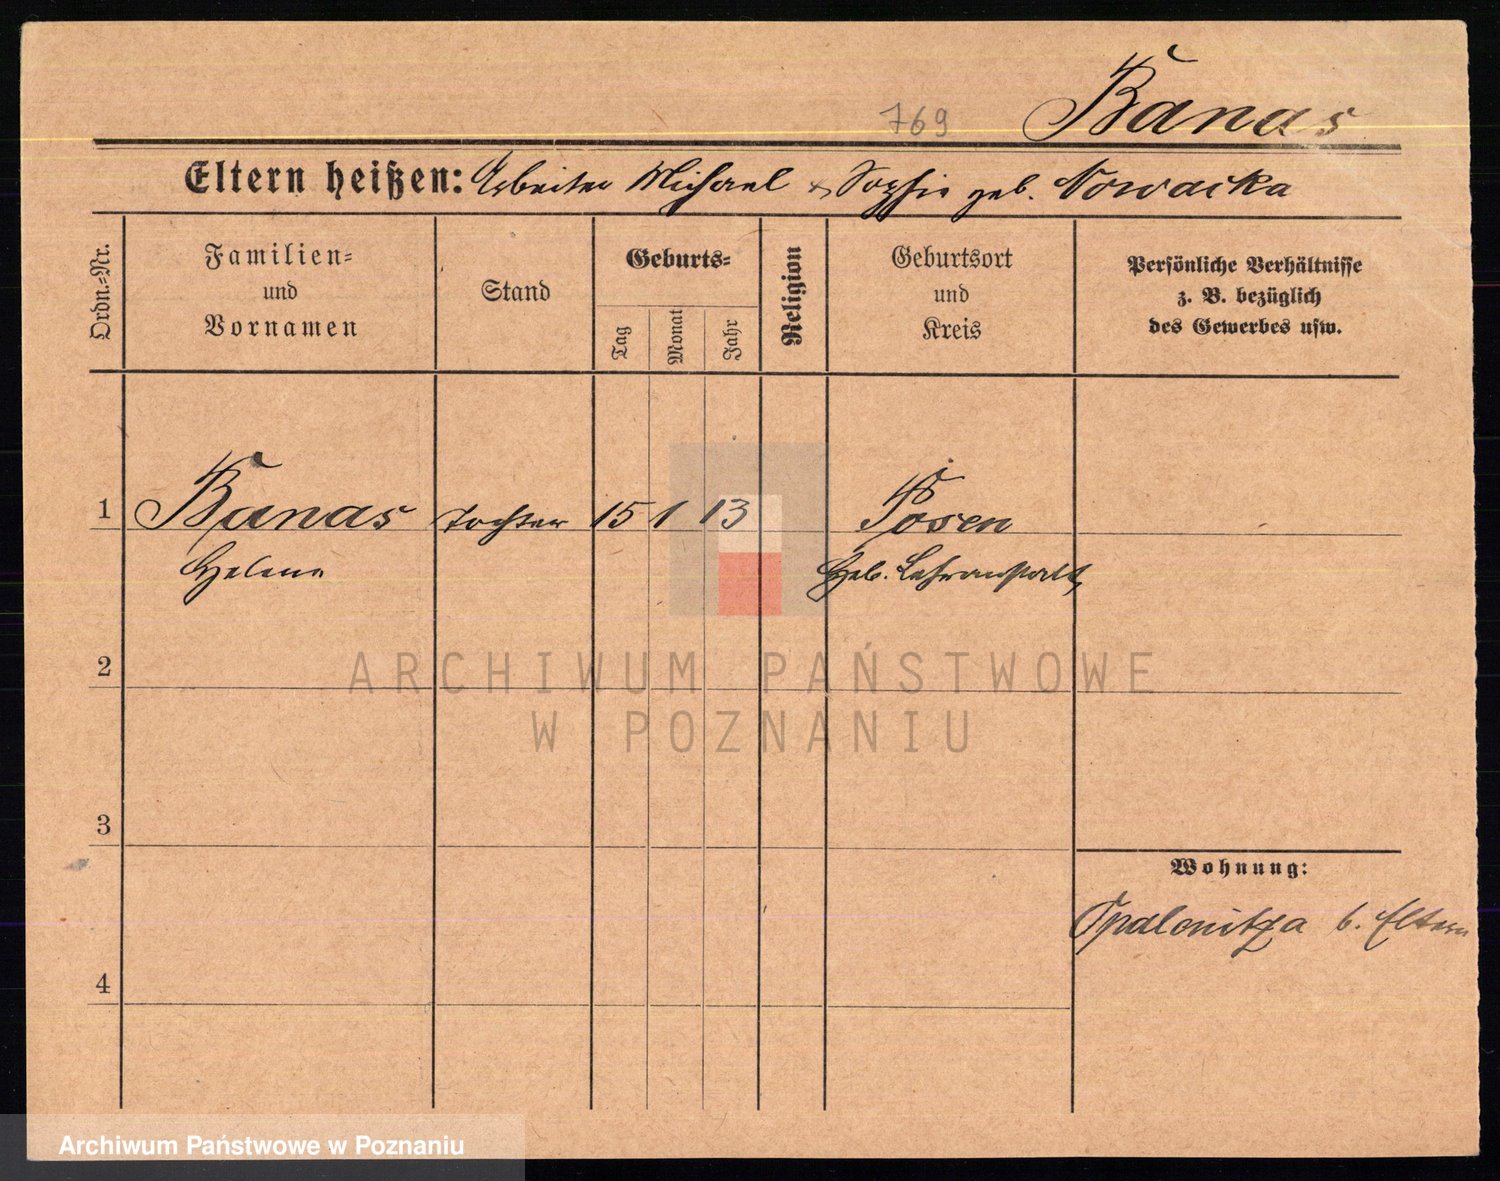 769 Banas
Eltern heißen: Arbeiter Michael & Sophie geb. Nowacka
Ordn.-Nr.
Familien-
und
Vornamen
Stand
Geburts-
Tag
Monat
Jahr
Religion
Geburtsort
und
Kreis
Persönliche Verhältnisse
z. B. bezüglich
des Gewerbes usw.
1 Banas Tochter 15 1 13 Posen
Helene Heb. Lehranstalt
2
ARCHIWUM PAŃSTWOWE
W POZNANIU
3
Wohnung:
Opalenitza b. Eltern
4
Archiwum Państwowe w Poznaniu